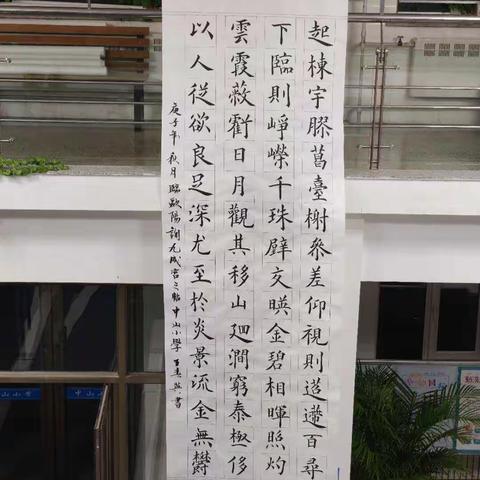 起棟宇膠葛臺榭叅差仰視則迢遰百尋
下臨則崢嶸千珠壁交暎金碧相暉照灼
雲霞蔽虧日月觀其移山迴澗窮泰極侈
以人從欲良足深尤至於炎景流金無鬱
庚子年秋月臨歐陽詢九成宮之帖中山小學王書
中山小学
中山小